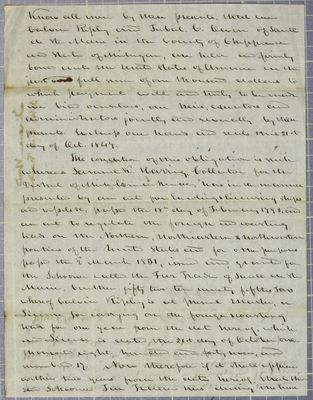 Know all men by these presents, that we
Calvin Ripley and Jubal C. of Sault
de Ste Marie in the County of Chippewa
and State of Michigan, are held and firmly
bound unto the United States of America in the
just and full sum of one thousand dollars to
which payment well and truly to be made
we bind ourselves, our heirs, executors and
administrators jointly and severally by these
presents. Witness our hands and seals this 21st
day of Oct. 1847.
The condition of this obligation is such
whereas Samuel K. Haring Collector for the
District of Michilimackinac has in the manner
prescribed by an act for enrolling & licensing ships
and vessels, passed the 18th day of February 1793, and
an act to regulate the foreign and coasting
trade on the Northern, Northeastern & Northwestern
frontiers of the United States and for other purposes
passed the 2d March 1831, issued and granted for
the Schooner called the Fur Trader of Sault de Ste
Marie burthen fifty two tons ninety fifths tons
whereof Calvin Ripley is at present Master, a
License for carrying on the foreign & coasting
trade for one year from the date hereof, which
said License is dated the 21st day of October one
thousand eight hundred and forty seven, and
number 17 Now therefore if it shall appear
within two years from the date hereof, that the
said Schooner Fur Trader has during the time